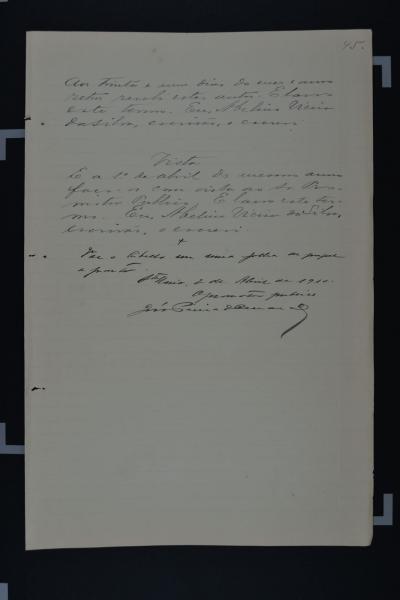 45.
Aos trinta e um dias do mez e anno
retro recebi estes autos. E lavro
este termo. Eu, Abelino Vieira
da Silva, escrivão, o escrevi
Vista
E a 1º de abril do mesmo anno
faço-os com vista ao Dr. Pro-
motor Publico. E lavro este ter-
mo. Eu, Abelino Vieira da Silva,
escrivão, o escrevi
Vae o libello em uma folha de papel
a parte.
2 de Abril de 1911.
O promotor publico
José